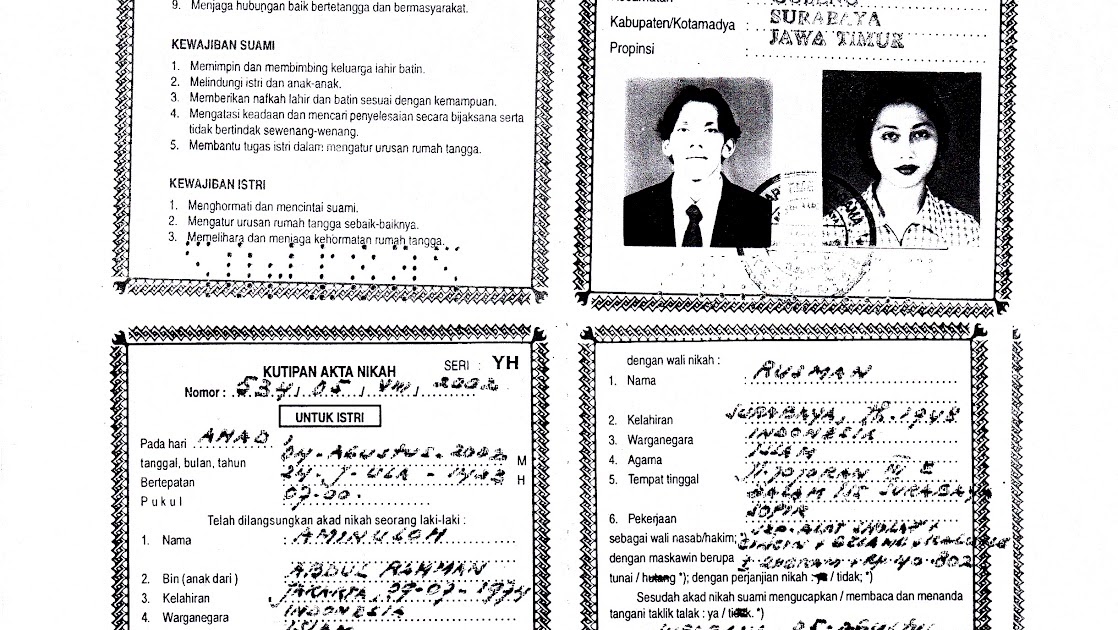 9. Menjaga hubungan baik bertetangga dan bermasyarakat.
KEWAJIBAN SUAMI
1. Memimpin dan membimbing keluarga lahir batin.
2. Melindungi istri dan anak-anak.
3. Memberikan nafkah lahir dan batin sesuai dengan kemampuan.
4. Mengatasi keadaan dan mencari penyelesaian secara bijaksana serta
tidak bertindak sewenang-wenang.
5. Membantu tugas istri dalam mengatur urusan rumah tangga.
KEWAJIBAN ISTRI
1. Menghormati dan mencintai suami.
2. Mengatur urusan rumah tangga sebaik-baiknya.
3. Memelihara dan menjaga kehormatan rumah tangga.
Kabupaten/Kotamadya : SURABAYA
Propinsi : JAWA TIMUR
KUTIPAN AKTA NIKAH
SERI : YH
Nomor : 534 / 05 / VIII / 2002
UNTUK ISTRI
Pada hari AHAD
tanggal, bulan, tahun 04 - AGUSTUS - 2002 M
Bertepatan H
Pukul 07.00
Telah dilangsungkan akad nikah seorang laki-laki :
1. Nama : AMINULOH
2. Bin (anak dari) ABDUL ROHMAN
3. Kelahiran JAKARTA, 07-07-1974
4. Warganegara INDONESIA
ISLAM
dengan wali nikah :
1. Nama : RUSMAN
2. Kelahiran SURABAYA, 1948
3. Warganegara INDONESIA
4. Agama ISLAM
5. Tempat tinggal JL. JOJORAN
DALAM SURABAYA
6. Pekerjaan SOPIR
sebagai wali nasab/hakim;
dengan maskawin berupa
tunai / hutang *); dengan perjanjian nikah : ya / tidak; *)
Sesudah akad nikah suami mengucapkan / membaca dan menanda
tangani taklik talak : ya / tidak. *)